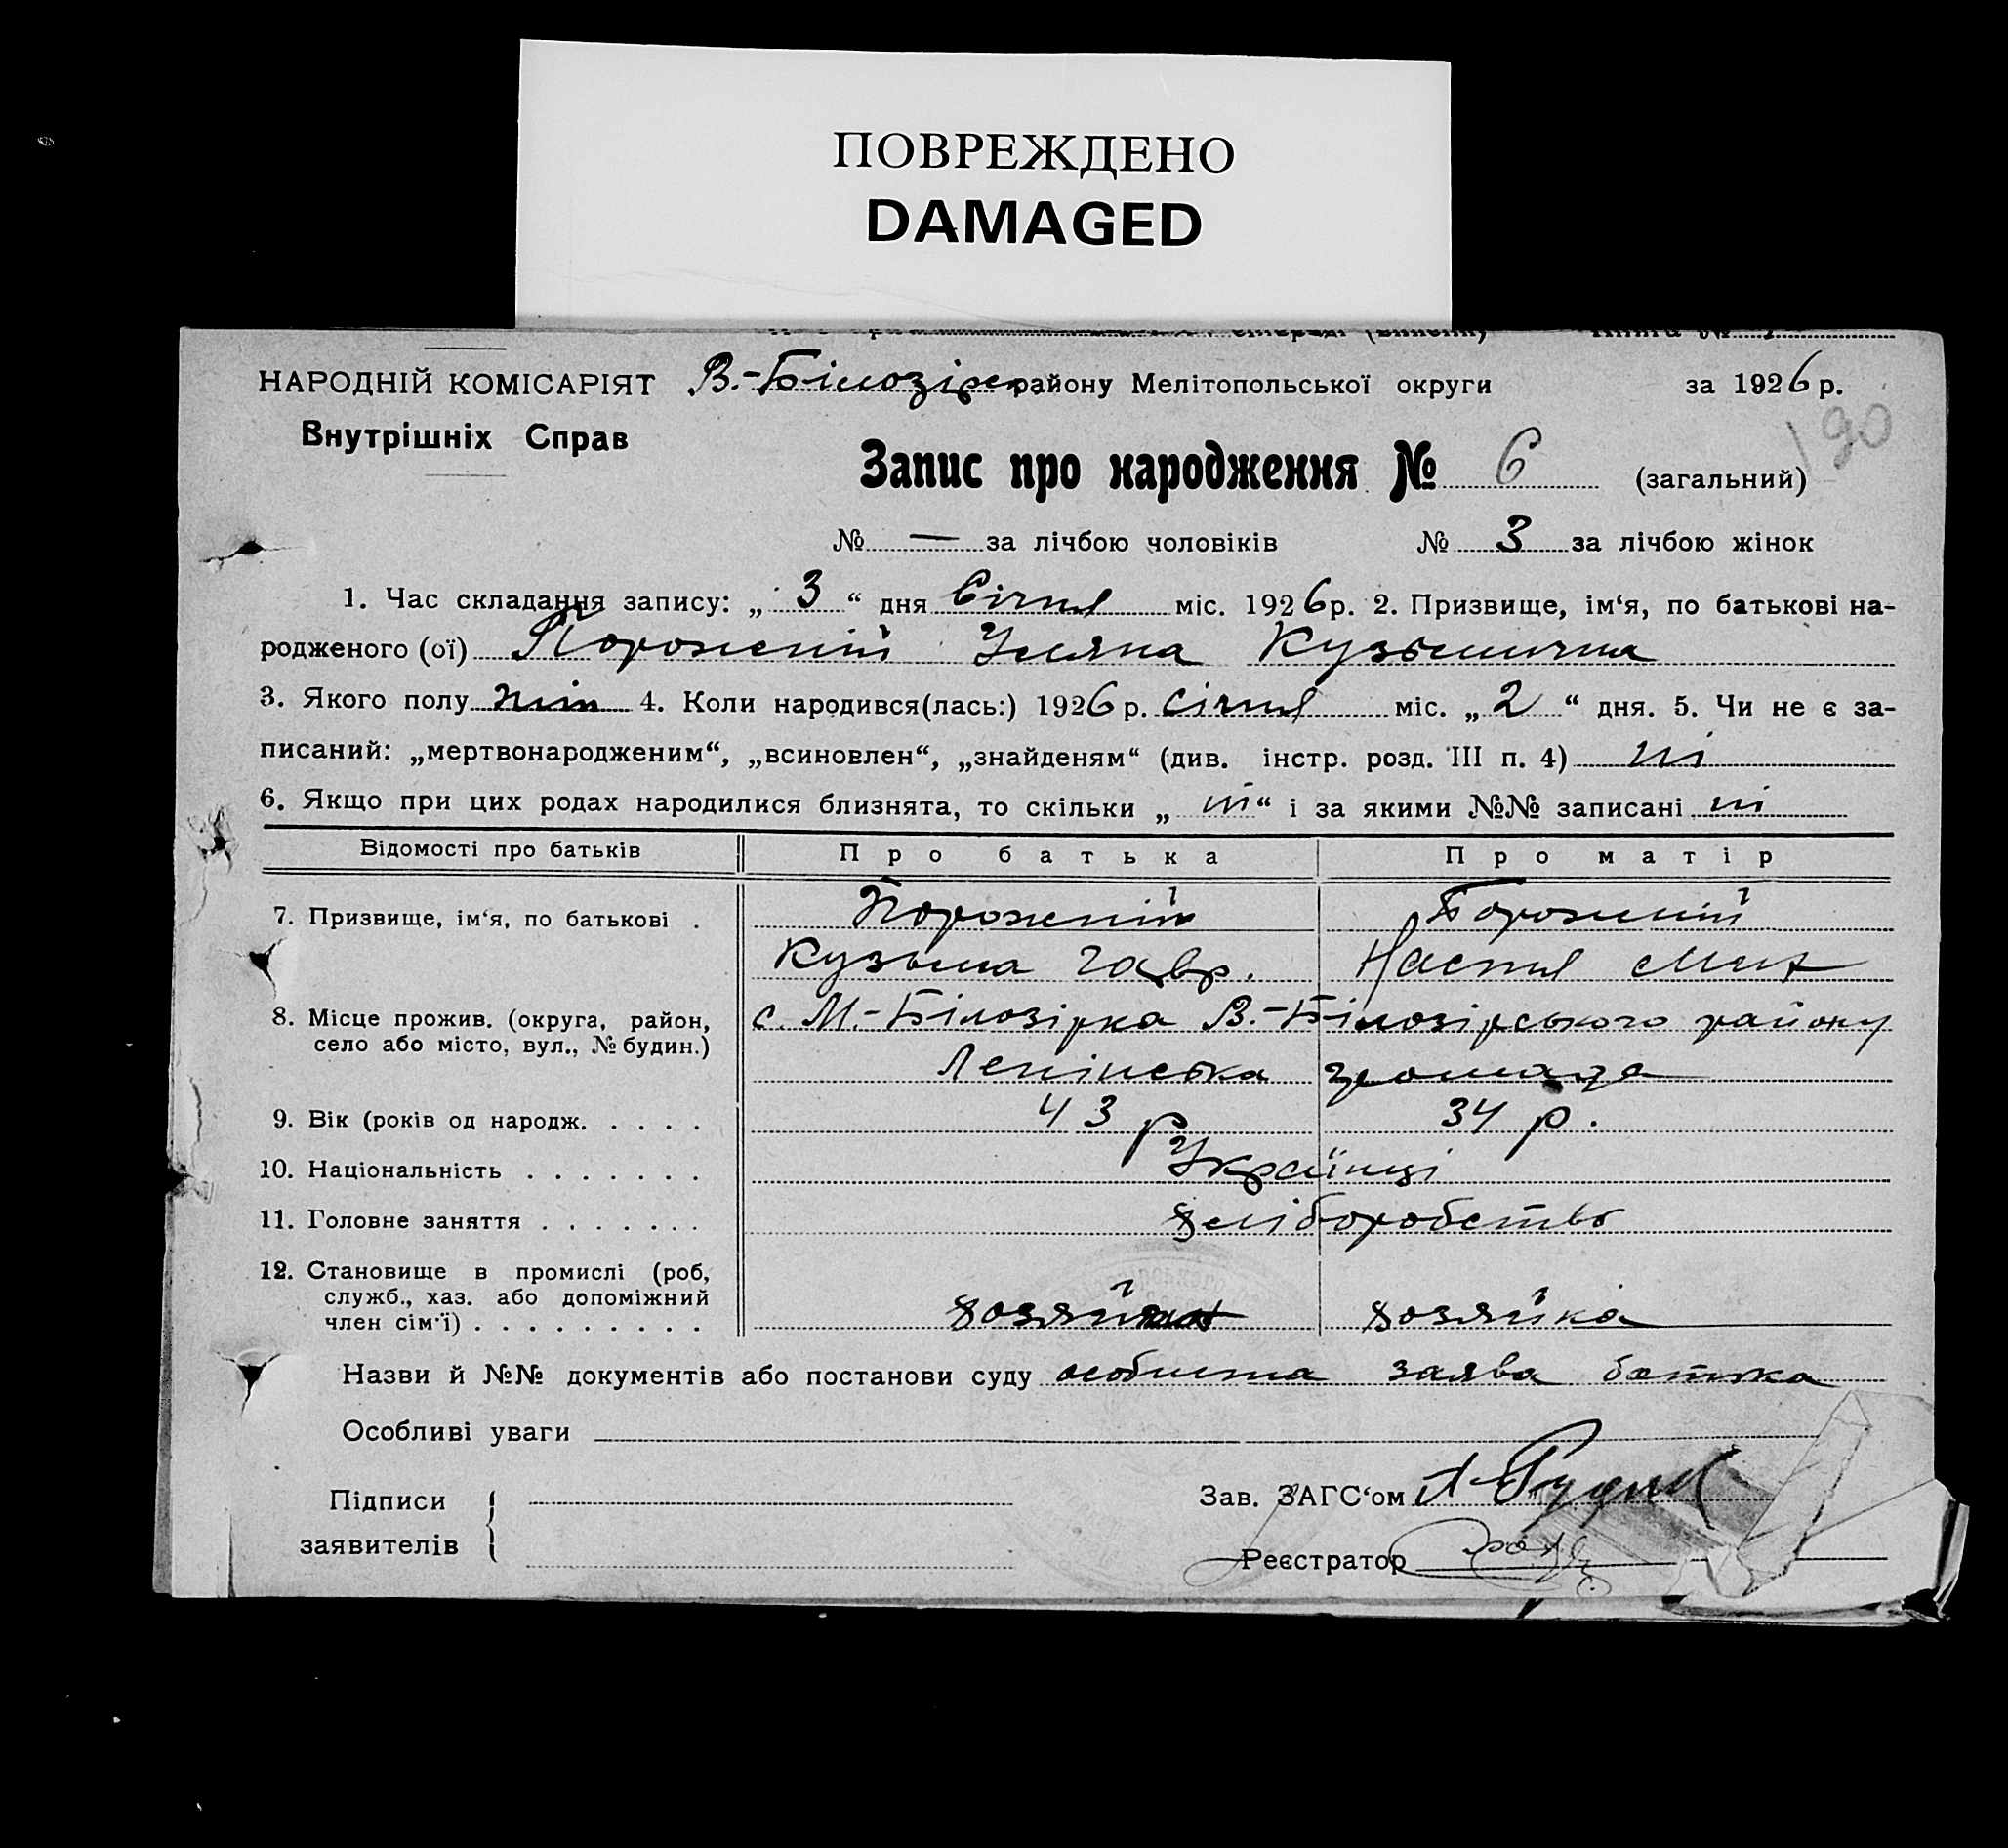 ПОВРЕЖДЕНО
DAMAGED
НАРОДНІЙ КОМІСАРІЯТ В.-Білозірк. району Мелітопольської округи за 1926 р.
Внутрішніх Справ
190
Запис про народження № 6 (загальний)
№ — за лічбою чоловіків № 3 за лічбою жінок
1. Час складання запису: „ 3 “ дня Січня міс. 1926 р. 2. Призвище, ім‘я, по батькові на-
родженого (ої) Порожній Уляна Кузьмична
3. Якого полу жін 4. Коли народився(лась:) 1926 р. січня міс. „ 2 “ дня. 5. Чи не є за-
писаний: „мертвонародженим“, „всиновлен“, „знайденям“ (див. інстр. розд. III п. 4) ні
6. Якщо при цих родах народилися близнята, то скільки „ ні “ і за якими №№ записані ні
Відомості про батьків Про батька Про матір
7. Призвище, ім‘я, по батькові . Порожній Порожній
Кузьма Гавр. Настя Мих
8. Місце прожив. (округа, район, с. М.-Білозірка В.-Білозірського району
село або місто, вул., № будин.)
Ленінська громада
9. Вік (років од народж. . . . . 43 р 34 р.
10. Національність . . . . . . . Українці
11. Головне заняття . . . . . . . хліборобство
12. Становище в промислі (роб,
служб., хаз. або допоміжний
член сім‘ї) . . . . . . . . . хозяїн хозяйка
Назви й №№ документів або постанови суду особиста заява батька
Особливі уваги
Підписи Зав. ЗАГС‘ом
заявителів Реєстратор